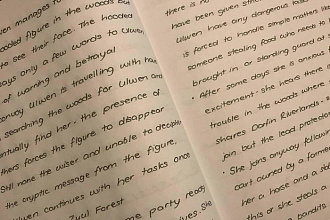 manages to
hooded figure in the woods but
to see their face. The hooded
says only a few words to Ulwen
of warning and betrayal
convoy Ulwen is travelling with have
searching the woods for Ulwen and
eventually find her. The presence of
others forces the figure to disappear
Still none the wiser and unable to decipher
the cryptic message from the figure,
Ulwen continues with her tasks once
Zuul Forest
there is no
have been given
Ulwen have any dangerous
is forced to handle simple matters like
someone stealing food who need to
brought in or standing guard at
• After some days she is
excitement. She hears there is
trouble in the woods where
shares Dorlin Riverlands.
join but the lead
• She joins anyway
cart owned by a farmer
her a horse and a
that or she steals a
bandits
party ready
She